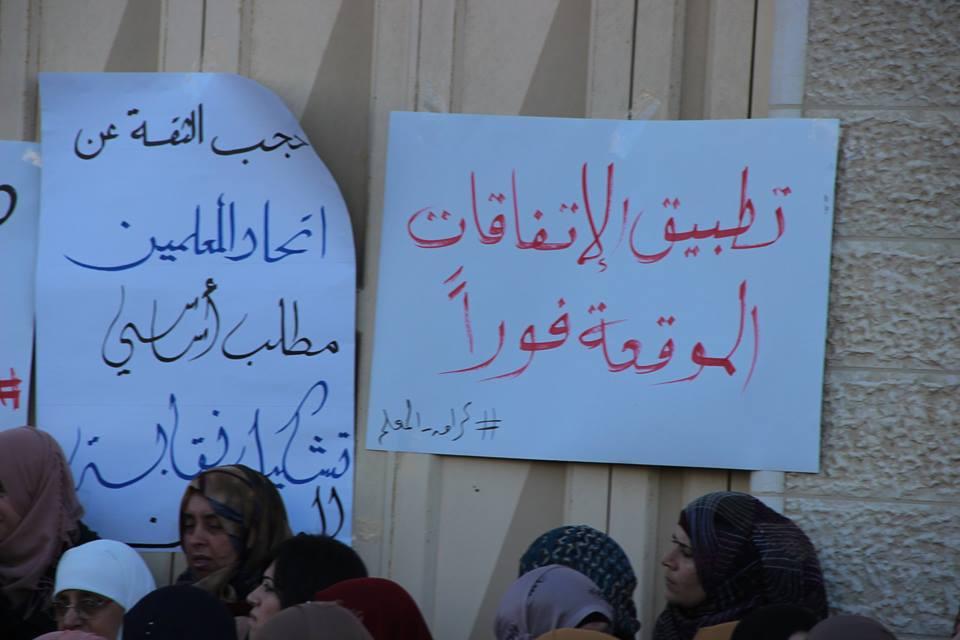 تطبيق الإتفاقات
الموقعة فوراً
#كرامة_المعلم
حجب الثقة عن
اتحاد المعلمين
مطلب أساسي
تشكيل نقابة
#